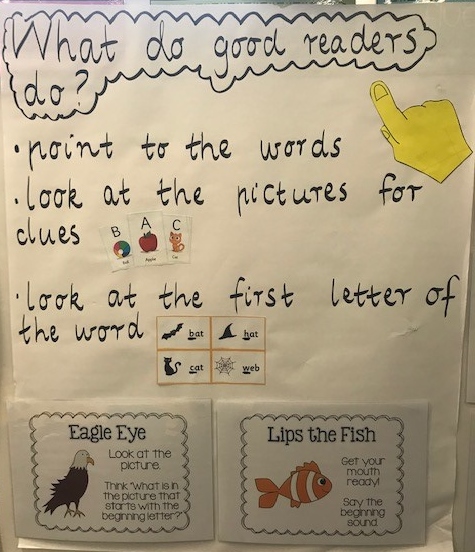 What do good readers
do?
• point to the words
• look at the pictures for
clues
B A C
Ball Apple Cat
• look at the first letter of
the word
bat hat
cat web
Eagle Eye
Look at the
picture.
Think "What is in
the picture that
starts with the
beginning letter?"
Lips the Fish
Get your
mouth
ready!
Say the
beginning
sound